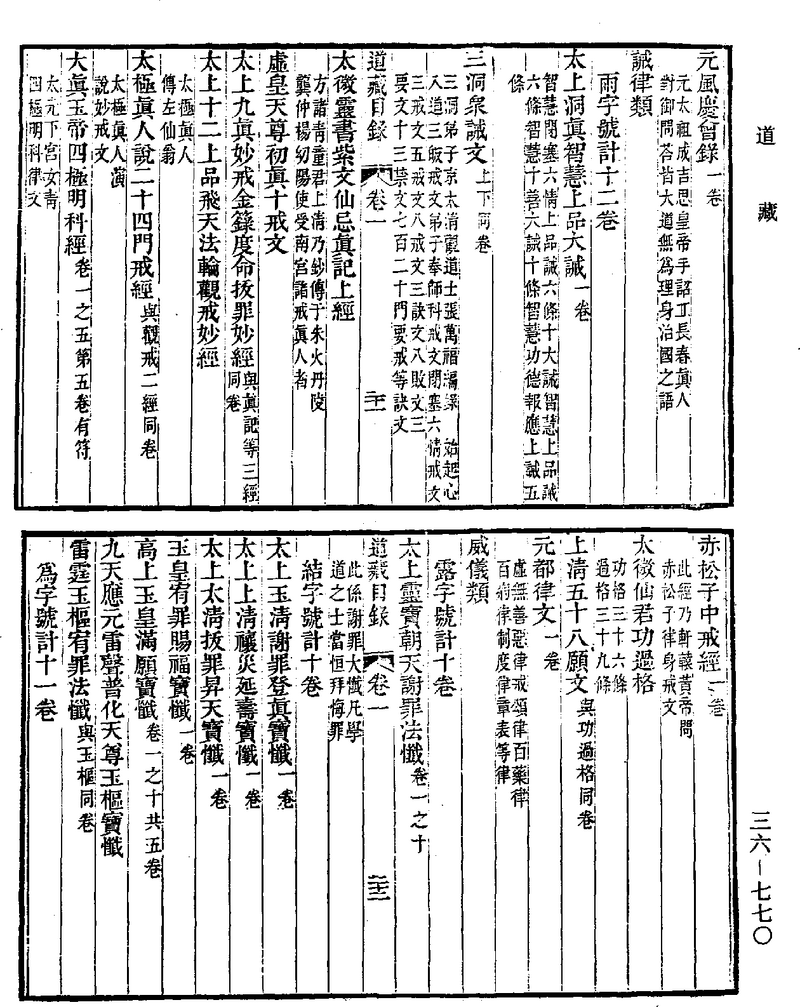 道藏
元風慶會錄一卷
元太祖成吉思皇帝手詔丘長春眞人
對御問答皆大道無爲理身治國之語
誡律類
雨字號計十二卷
太上洞眞智慧上品大誡一卷
智慧閉塞六情上品誡六條十大誡智慧上品誡
六條智慧十善六誡十條智慧功德報應上誡五
條
三洞衆誡文上下同卷
三洞弟子京太清觀道士張萬福編錄 始起心
入道三皈戒文弟子奉師科戒文閉塞六情戒文
三戒文五戒文八戒文三訣文八敗文三
要文十三禁文七百二十門要戒等訣文
道藏目錄 卷一 二十一
太微靈書紫文仙忌眞記上經
方諸青童君上清乃鈔傳于朱火丹陵
龔仲楊幼陽使受南宮諸戒眞人者
虛皇天尊初眞十戒文
太上九眞妙戒金籙度命拔罪妙經與眞記等三經同卷
太上十二上品飛天法輪觀戒妙經
太極眞人
傳左仙翁
太極眞人說二十四門戒經與觀戒二經同卷
太極眞人演
說妙戒文
大眞玉帝四極明科經卷一之五第五卷有符
太元下宮女青
四極明科律文
赤松子中戒經一卷
此經乃軒轅黃帝問
赤松子律身戒文
太微仙君功過格
功格三十六條
過格三十九條
上清五十八願文與功過格同卷
元都律文一卷
虛無善惡律戒頌律百藥律
百病律制度律章表等律
威儀類
露字號計十卷
太上靈寶朝天謝罪法懺卷一之十
道藏目錄 卷一 二十二
此係謝罪大懺凡學
道之士當恒拜悔罪
結字號計十卷
太上玉清謝罪登眞寶懺一卷
太上上清禳災延壽寶懺一卷
太上太清拔罪昇天寶懺一卷
玉皇宥罪賜福寶懺一卷
高上玉皇滿願寶懺卷一之十共五卷
九天應元雷聲普化天尊玉樞寶懺
雷霆玉樞宥罪法懺與玉樞同卷
爲字號計十一卷
三六—七七〇